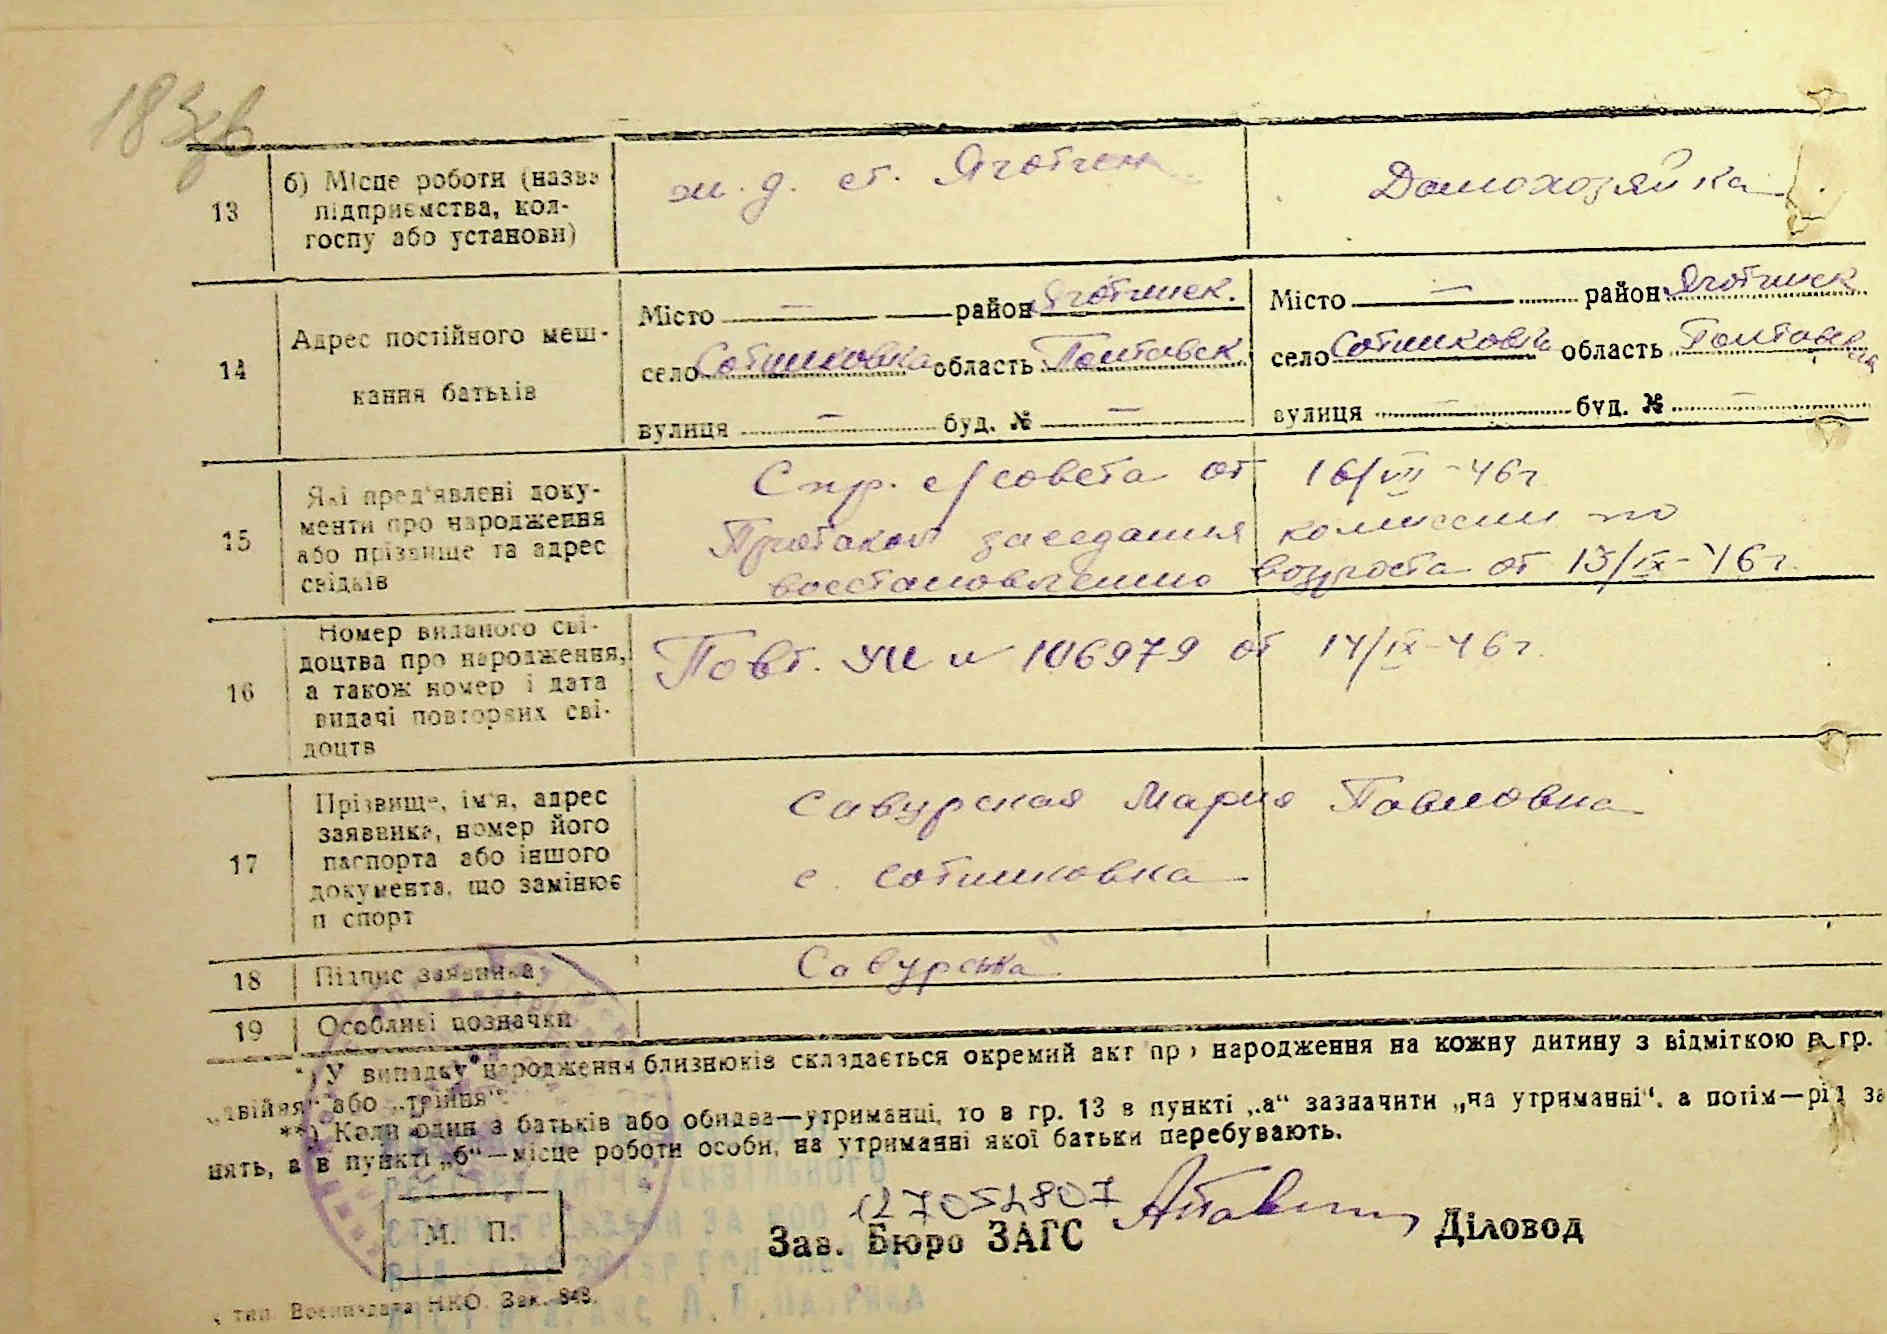 183зв
13
б) Місце роботи (назва
підприємства, кол-
госпу або установи)
ж. д. ст. Яготин
Домохозяйка
14
Адрес постійного меш-
кання батьків
Місто — район Яготинск.
село Сотниковка область Полтавск.
вулиця — буд. № —
Місто — район Яготинск
село Сотниковка область Полтавская
вулиця — буд. № —
15
Які пред'явлені доку-
менти про народження
або прізвище та адрес
свідків
Спр. с/совета от 16/VII-46 г.
Протакол заседания комиссии по
восстановлению возроста от 13/IX-46 г.
16
Номер виданого сві-
доцтва про народження,
а також номер і дата
видачі повторних сві-
доцтв
Повт. УЩ № 106979 от 14/IX-46 г.
17
Прізвище, ім'я, адрес
заявника, номер його
паспорта або іншого
документа, що замінює
п спорт
Савурская Мария Павловна
с. Сотниковка
18
Підпис заявника
Савурська
19
Особливі позначки
*) У випадку народження близнюків складається окремий акт про народження на кожну дитину з відміткою в гр.
„двійня" або „трійня".
**) Коли один з батьків або обидва—утриманці, то в гр. 13 в пункті „а" зазначити „на утриманні", а потім—рід за
нять, а в пункті „б"—місце роботи особи, на утриманні якої батьки перебувають.
М. П.
127052807
Зав. Бюро ЗАГС
Діловод
тип. Воениздата НКО. Зак. 848.